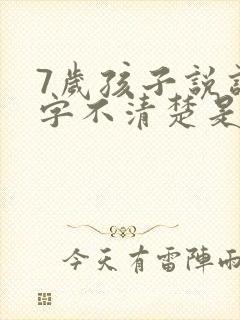 7歲孩子說
字不清楚是
今天有雷陣雨